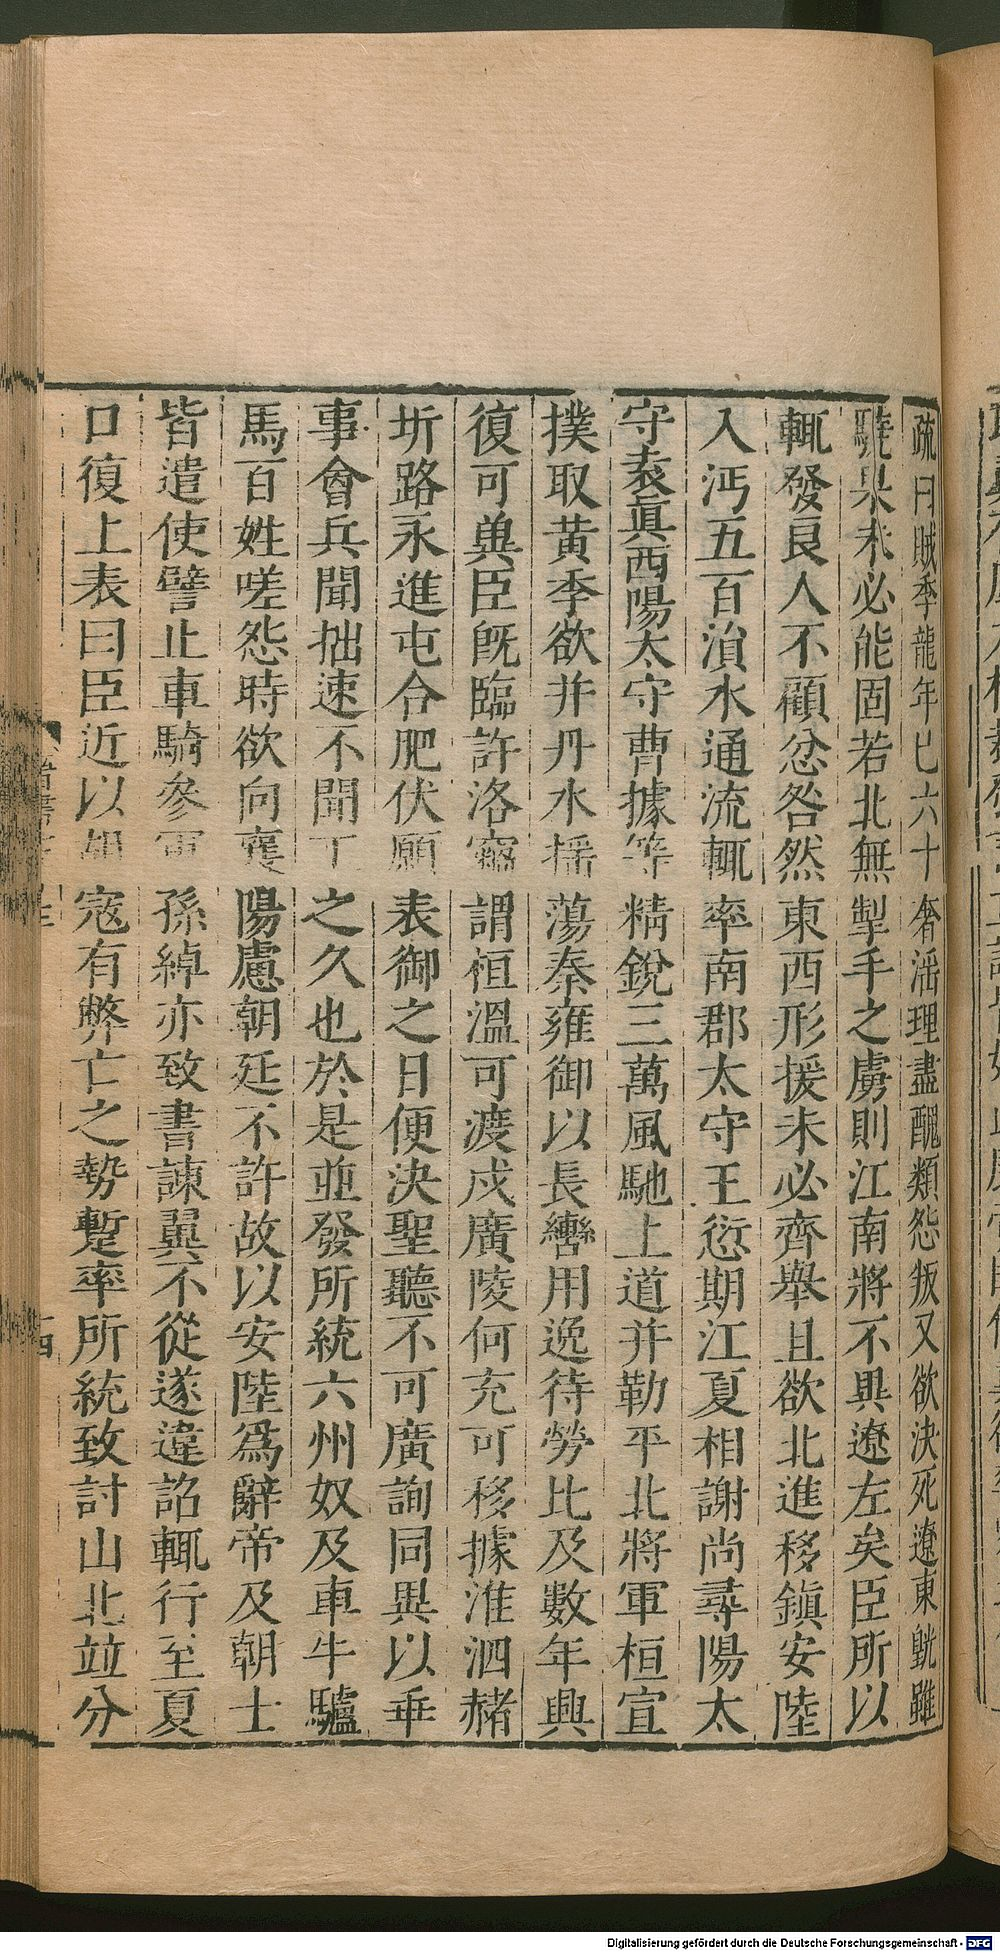 疏曰賊季龍年已六十奢淫理盡醜類怨叛又欲決死遼東皝雖
驍果未必能固若北無掣手之虜則江南將不異遼左矣臣所以
輒發良人不顧忿咎然東西形援未必齊舉且欲北進移鎮安陸
入沔五百溳水通流輒率南郡太守王愆期江夏相謝尚尋陽太
守袁眞西陽太守曹據等精銳三萬風馳上道并勒平北將軍桓宣
撲取黄季欲并丹水揺蕩秦雍御以長轡用逸待勞比及數年興
復可兾臣旣臨許洛竊謂桓溫可渡戍廣陵何充可移據淮泗赭
圻路永進屯合肥伏願表御之日便決聖聽不可廣詢同異以乖
事會兵聞拙速不聞工之久也於是並發所統六州奴及車牛驢
馬百姓嗟怨時欲向襄陽慮朝廷不許故以安陸爲辭帝及朝士
皆遣使譬止車騎參軍孫綽亦致書諫翼不從遂違詔輒行至夏
口復上表曰臣近以胡寇有弊亡之勢蹔率所統致討山北並分
Digitalisierung gefördert durch die Deutsche Forschungsgemeinschaft - DFG